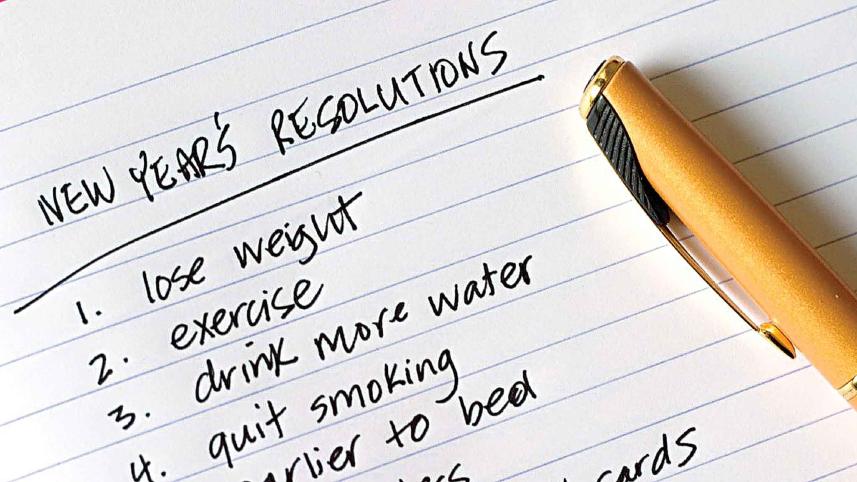 NEW YEAR'S RESOLUTIONS
1. lose weight
2. exercise
3. drink more water
4. quit smoking
earlier to bed
cards